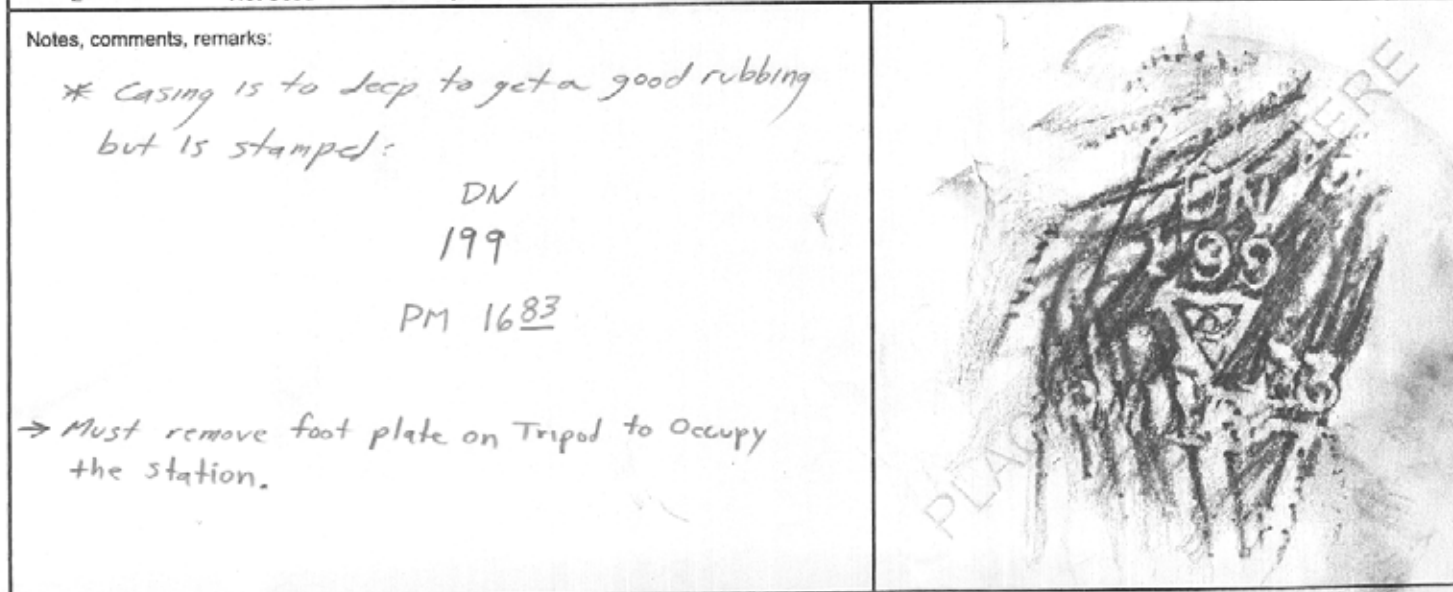 Notes, comments, remarks:
* Casing is to deep to get a good rubbing
but is stamped:
DN
199
PM 1683
→ Must remove foot plate on Tripod to Occupy
the station.
DN
199